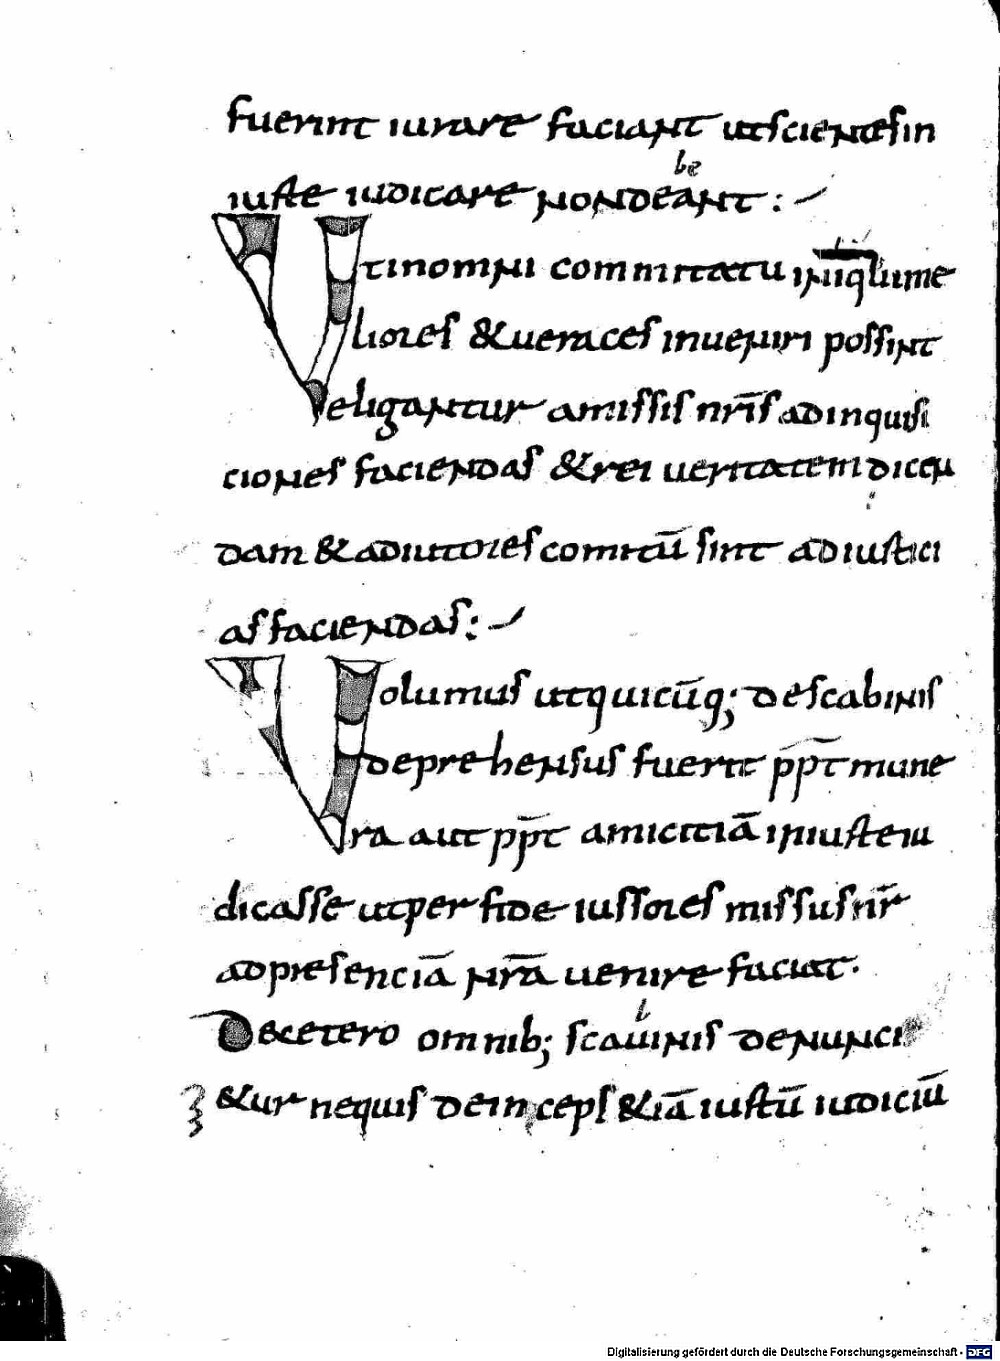 fuerint iurare faciant ut scientes in
iuste iudicare non deant :
be
Ut in omni comitatu inii qui me
liores & ueraces inueniri possint
eligantur a missis nr̄is ad inquisi
ciones faciendas & rei ueritatem dicen
dam & adiutores comitū sint ad iustici
as faciendas :
Uolumus ut quicūq; de scabinis
deprehensus fuerit pp̄t mune
ra aut pp̄t amicitiā iniuste iu
dicasse ut per fideiussores missus nr̄
ad presenciā nr̄ā uenire faciat.
b
De cetero omnib; scauinis denunci
&ur nequis deinceps &iā iustū iudiciū
Digitalisierung gefördert durch die Deutsche Forschungsgemeinschaft - DFG